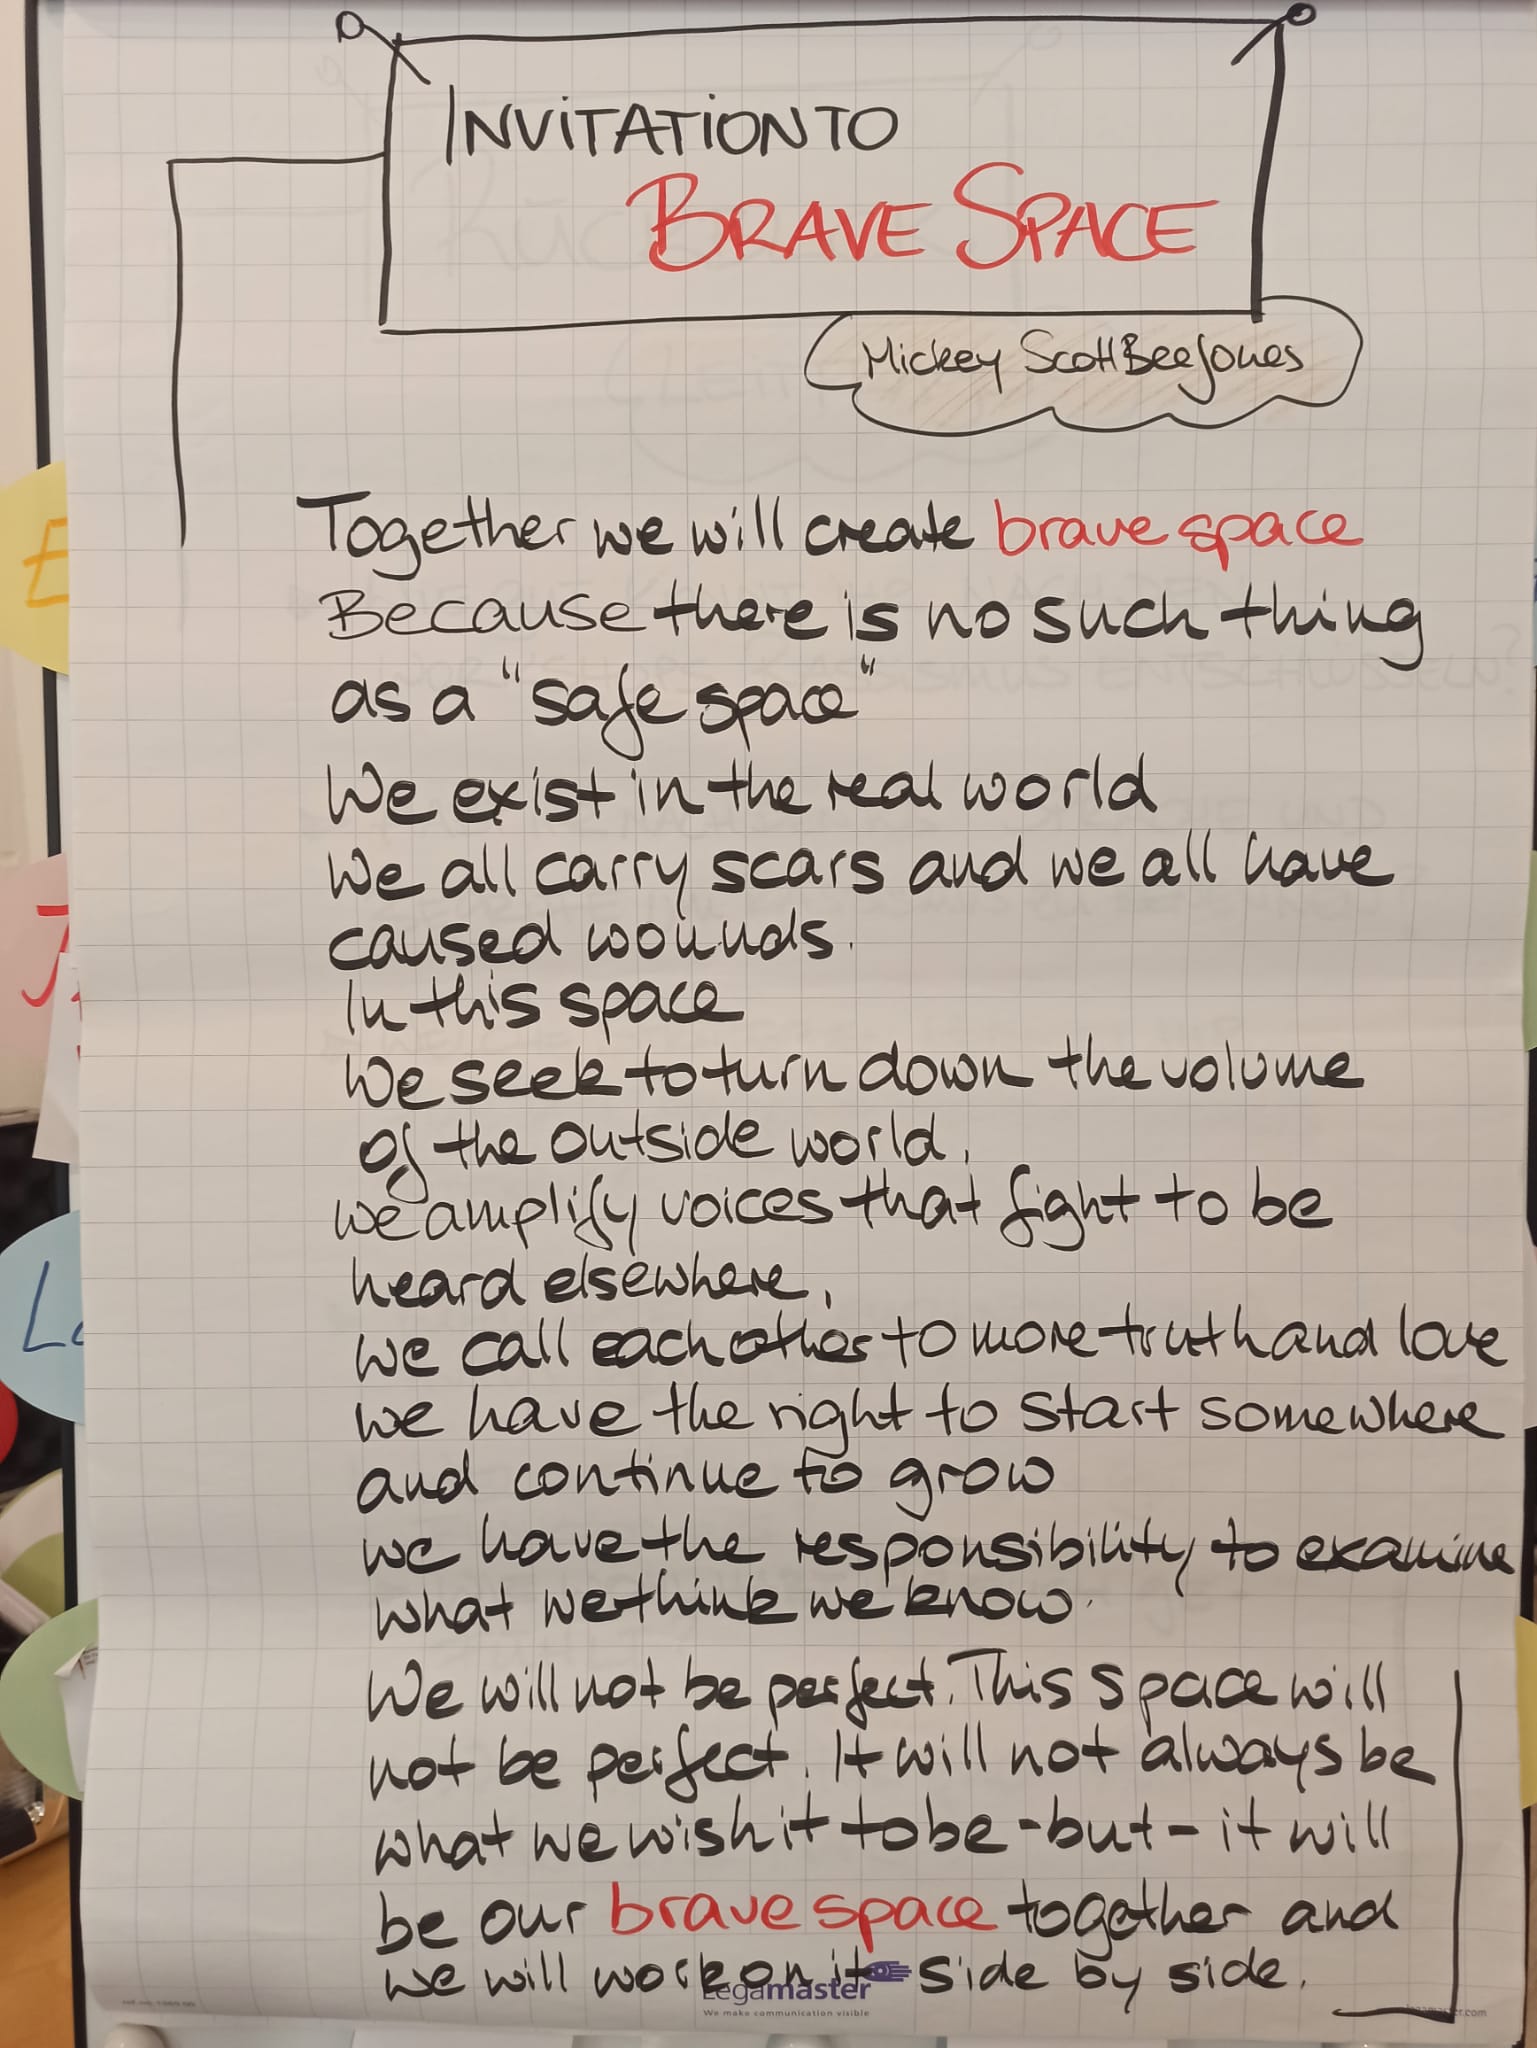 INViTATiON TO
BRAVE SPACE
Mickey ScottBeeJones
Together we will create brave space
Because there is no such thing
as a "safe space"
We exist in the real world
We all carry scars and we all have
caused wounds.
In this space
We seek to turn down the volume
of the outside world,
we amplify voices that fight to be
heard elsewhere,
we call each other to more truth and love
we have the right to start somewhere
and continue to grow
we have the responsibility to examine
what we think we know.
We will not be perfect. This space will
not be perfect. It will not always be
what we wish it to be - but - it will
be our brave space together and
we will work on it side by side.
Legamaster
We make communication visible
legamaster.com